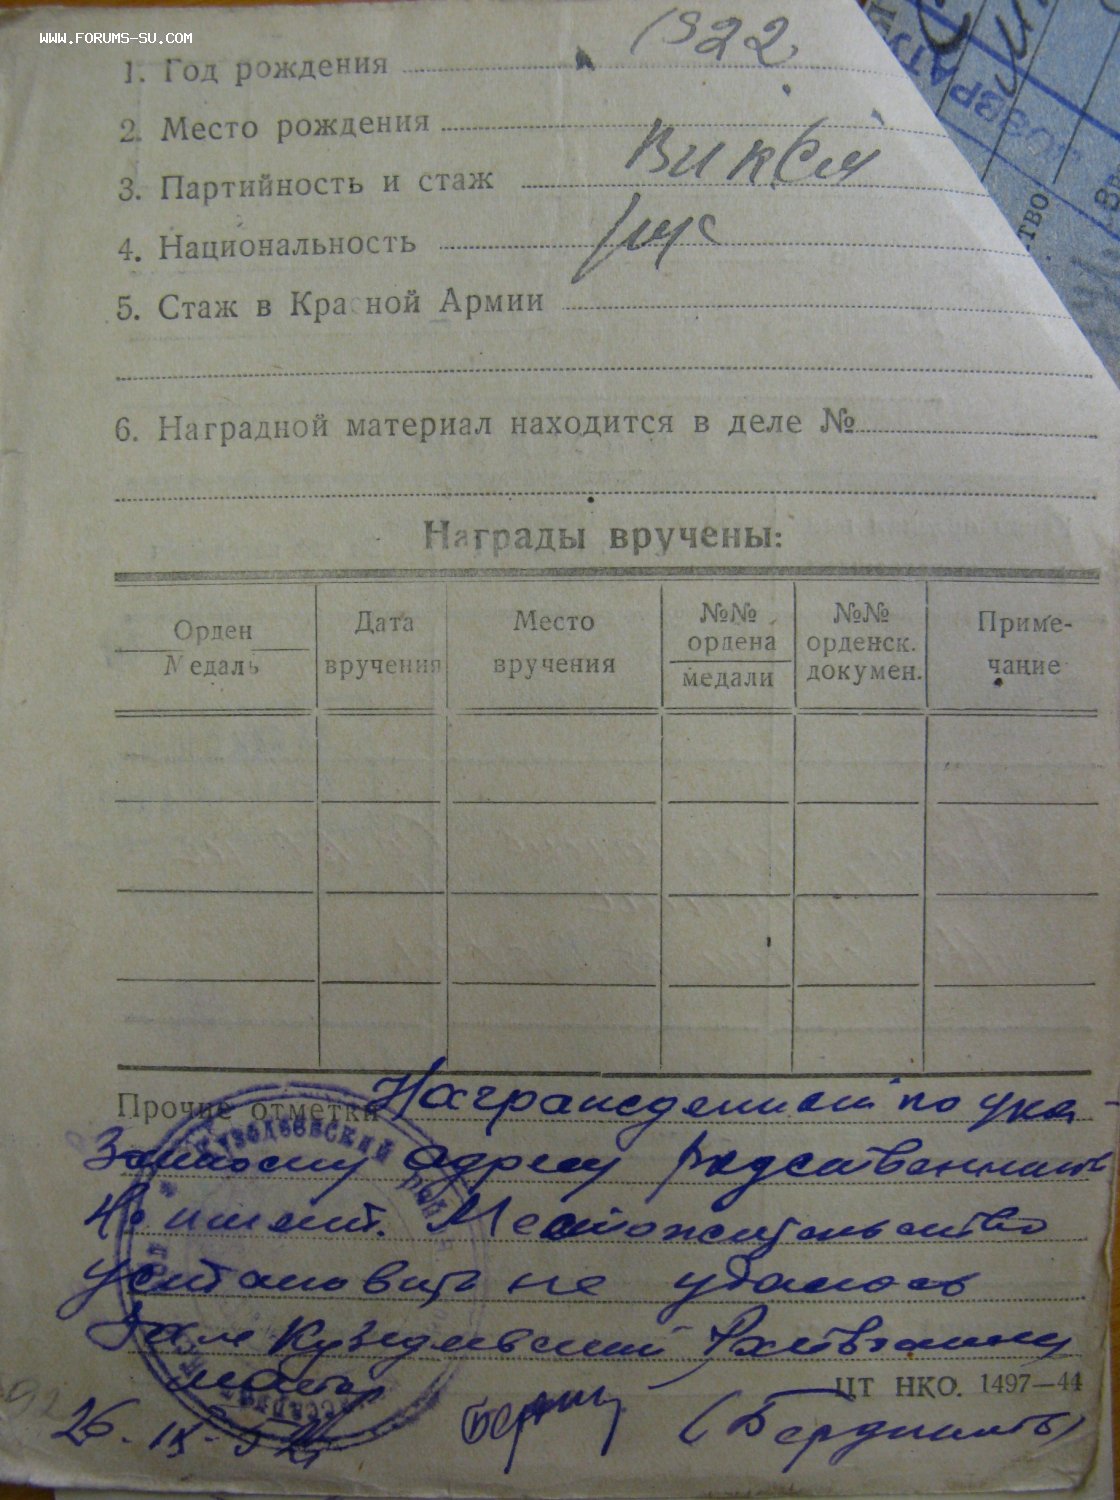 www.forums-su.com
1. Год рождения 1922
2. Место рождения
3. Партийность и стаж ВЛКСМ
4. Национальность рус
5. Стаж в Красной Армии
6. Наградной материал находится в деле №
Награды вручены:
Орден
Медаль
Дата
вручения
Место
вручения
№№
ордена
медали
№№
орденск.
докумен.
Приме-
чание
Прочие отметки Награжденный по ука-
занному адресу родственников
не имеет. Местожительство
установить не удалось
Зам Кузедеевский Райвоенком
ЦТ НКО. 1497—44
26.